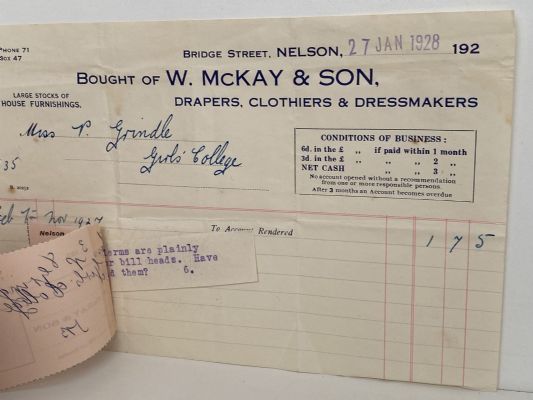 PHONE 71
BOX 47
BRIDGE STREET, NELSON, 27 JAN 1928 192
BOUGHT OF W. McKAY & SON,
LARGE STOCKS OF
HOUSE FURNISHINGS.
DRAPERS, CLOTHIERS & DRESSMAKERS
Miss P. Grindle
Girls' College
35
CONDITIONS OF BUSINESS:
6d. in the £ ,, if paid within 1 month
3d. in the £ ,, ,, ,, 2 ,,
NET CASH ,, ,, 3 ,,
No account opened without a recommendation
from one or more responsible persons.
After 3 months an Account becomes overdue
Nov 1927
Nelson
To Account Rendered 1 7 5
terms are plainly
r bill heads. Have
d them? 6.